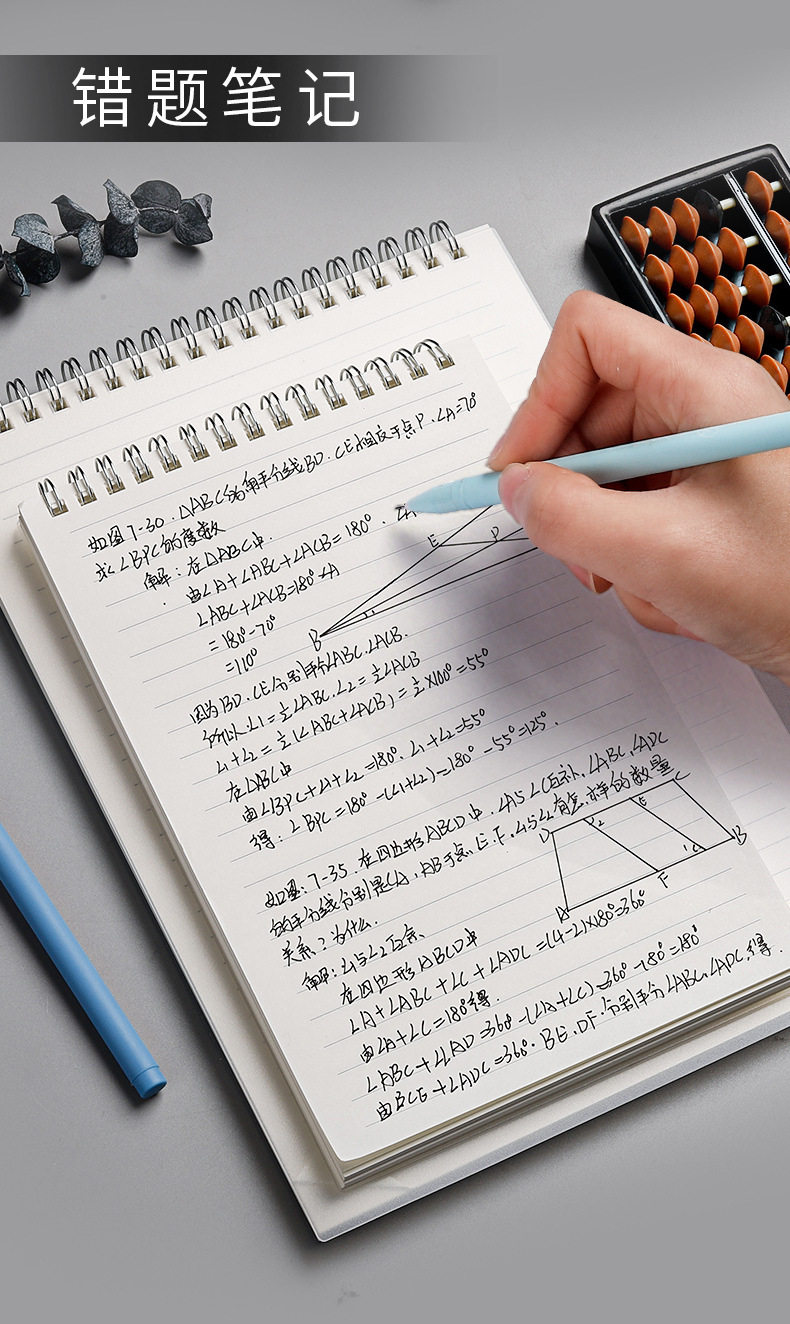 错题笔记
如图7-30.△ABC的角平分线BD.CE相交于点P.∠A=70°
求∠BPC的度数
解:在△ABC中.
由∠A+∠ABC+∠ACB=180°.∠A
∠ABC+∠ACB=180°-∠A
=180°-70°
=110°
E
P
B
因为BD.CE分别平分∠ABC.∠ACB.
所以∠1=½∠ABC.∠2=½∠ACB
∠1+∠2=½(∠ABC+∠ACB)=½×100°=55°
在△ABC中
由∠BPC+∠1+∠2=180°.∠1+∠2=55°
得:∠BPC=180°-(∠1+∠2)=180°-55°=125°.
如图:7-35.在四边形ABCD中.∠A与∠C互补.∠ABC,∠ADC
的平分线分别是CA,AB于点E.F.∠1与∠2有怎样的数量
关系?为什么.
D
2
E
C
B
1
F
A
解:∠1与∠2互余.
在四边形ABCD中
∠A+∠ABC+∠C+∠ADC=(4-2)×180°=360°
由∠A+∠C=180°得.
∠ABC+∠LAD=360°-(∠A+∠C)=360°-180°=180°
由BCE+∠ADC=360°.BE.DF.分别平分∠ABC,∠ADC,得.